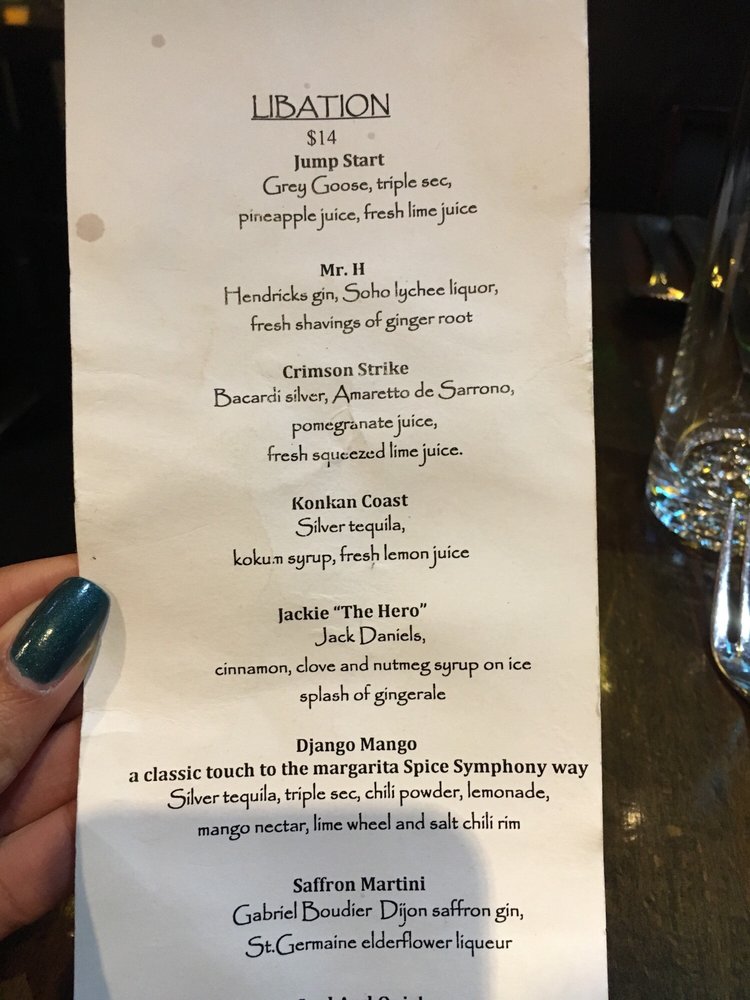 LIBATION
$14
Jump Start
Grey Goose, triple sec,
pineapple juice, fresh lime juice
Mr. H
Hendricks gin, Soho lychee liquor,
fresh shavings of ginger root
Crimson Strike
Bacardi silver, Amaretto de Sarrono,
pomegranate juice,
fresh squeezed lime juice.
Konkan Coast
Silver tequila,
kokum syrup, fresh lemon juice
Jackie “The Hero”
Jack Daniels,
cinnamon, clove and nutmeg syrup on ice
splash of gingerale
Django Mango
a classic touch to the margarita Spice Symphony way
Silver tequila, triple sec, chili powder, lemonade,
mango nectar, lime wheel and salt chili rim
Saffron Martini
Gabriel Boudier Dijon saffron gin,
St.Germaine elderflower liqueur